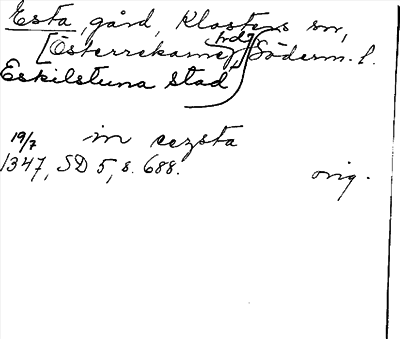 Esta, gård, Klosters sn,
[Österrekarne hd,] Söderm. l.
Eskilstuna stad
19/7 in eezsta
1347, SD 5, s. 688. orig.